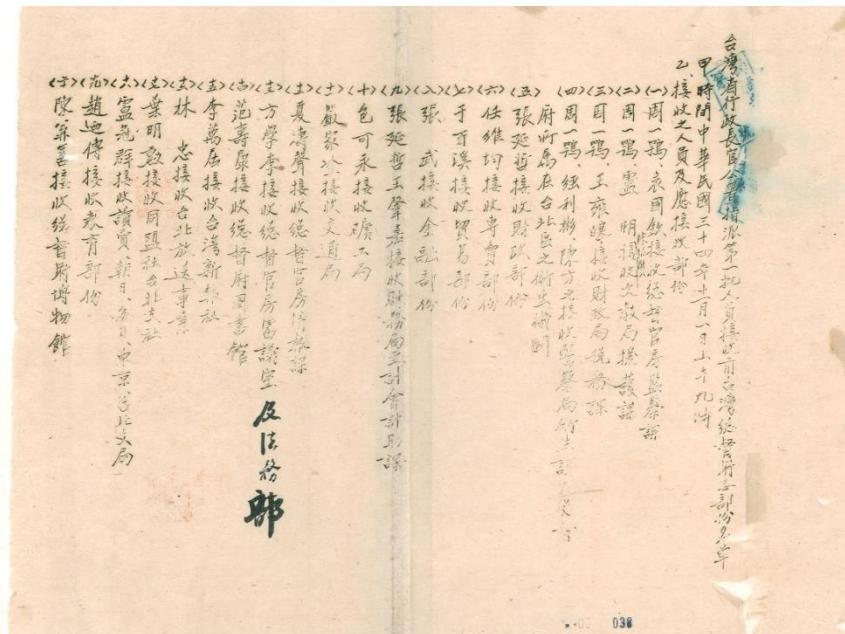 台灣省行政長官公署指派第一批人員接收前台灣總督府各部份名單
甲、時間中華民國三十四年十一月一日上午九時
乙、接收之人員及應接收部份
(一)周一鶚、袁國欽接收總督官房監察課
(二)周一鶚、盧明接收文教局援護課
(三)周一鶚、王雍皞接收財政局稅務課
(四)周一鶚、經利彬、陳方之接收警察局衛生課及
府所屬在台北區之衛生機關
(五)張延哲接收財政部份
(六)任維均接收專賣部份
(七)于百溪接收貿易部份
(八)張 武接收金融部份
(九)張延哲王肇嘉接收財務局主計會計兩課
(十)包可永接收礦工局
(十一)嚴家淦接收交通局
(十二)夏濤聲接收總督官房情報課
(十三)方學李接收總督官房審議室及法務部
(十四)范壽康接收總督府圖書館
(十五)李萬居接收台灣新報社
(十六)林 忠接收台北放送事業
(十七)葉明勳接收同盟社台北支社
(十八)盧冠群接收讀賣、朝日、每日、東京等台北支局
(十九)趙迺傳接收教育部份
(二十)陳兼善接收總督府博物館
038